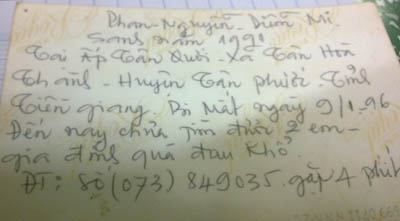 Phan-Nguyễn-Diễm Mi.
Sanh năm 1991
Tại Ấp Tân Quới-Xã Tân Hòa
Thành-Huyện Tân phước. Tỉnh
Tiền giang Bị Mất ngày 9/1.96
Đến nay chưa tìm được 2 em-
gia đình quá đau khổ.
ĐT: Số (073) 849035. gặp 4 phút